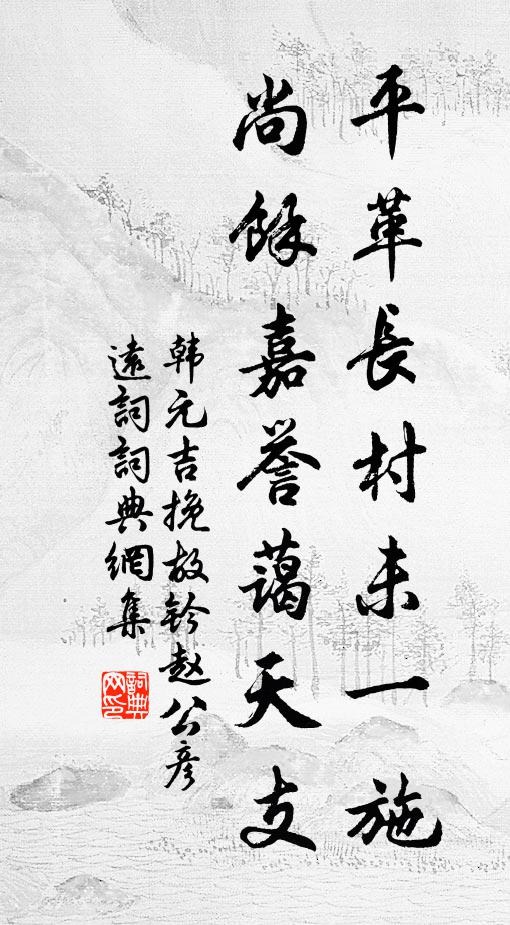 平革長村未一施
尚餘嘉譽藹天支
韩元吉挽故鈐赵公彦
遠詞詞典網集
詞典网印